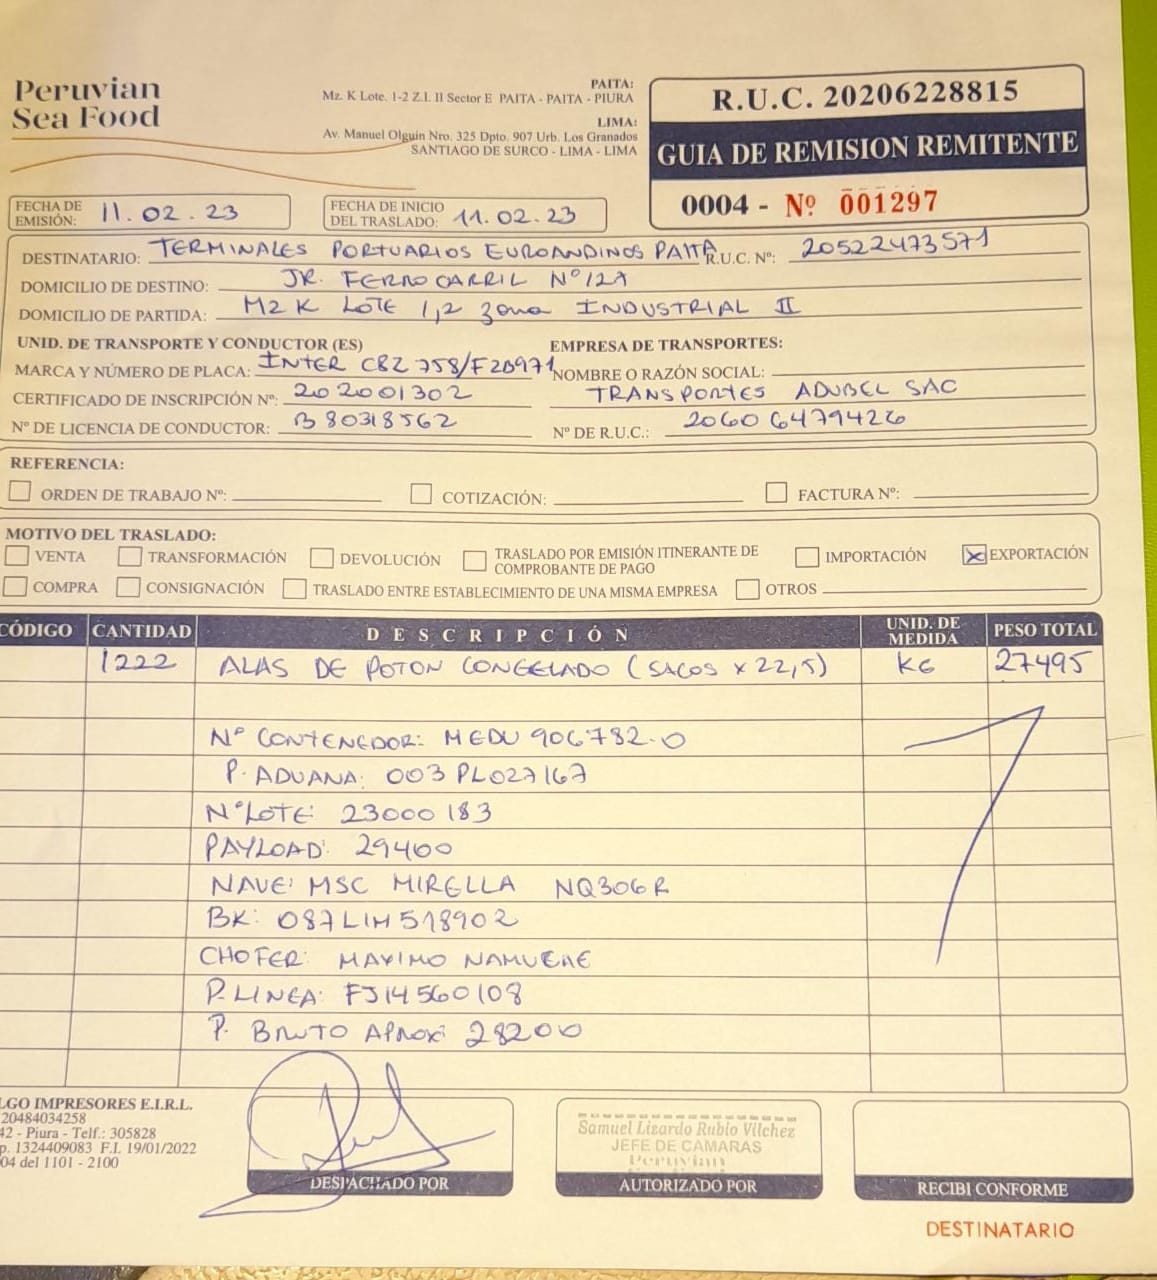 Peruvian
Sea Food
PAITA:
Mz. K Lote. 1-2 Z.I. II Sector E PAITA - PAITA - PIURA
LIMA:
Av. Manuel Olguin Nro. 325 Dpto. 907 Urb. Los Granados
SANTIAGO DE SURCO - LIMA - LIMA
R.U.C. 20206228815
GUIA DE REMISION REMITENTE
0004 - Nº 001297
FECHA DE EMISIÓN: 11.02.23
FECHA DE INICIO DEL TRASLADO: 11.02.23
DESTINATARIO: TERMINALES PORTUARIOS EUROANDINOS PAITA R.U.C. Nº: 20522473571
DOMICILIO DE DESTINO: JR. FERROCARRIL Nº 127
DOMICILIO DE PARTIDA: MZ K LOTE 1,2 zona INDUSTRIAL II
UNID. DE TRANSPORTE Y CONDUCTOR (ES)
MARCA Y NÚMERO DE PLACA: INTER CBZ 758/F2D971
CERTIFICADO DE INSCRIPCIÓN Nº: 202001302
Nº DE LICENCIA DE CONDUCTOR: B80318562
EMPRESA DE TRANSPORTES:
NOMBRE O RAZÓN SOCIAL:
TRANSPORTES ADUBEL SAC
Nº DE R.U.C.: 20606479426
REFERENCIA:
ORDEN DE TRABAJO Nº: COTIZACIÓN: FACTURA Nº:
MOTIVO DEL TRASLADO:
VENTA TRANSFORMACIÓN DEVOLUCIÓN TRASLADO POR EMISIÓN ITINERANTE DE COMPROBANTE DE PAGO IMPORTACIÓN X EXPORTACIÓN
COMPRA CONSIGNACIÓN TRASLADO ENTRE ESTABLECIMIENTO DE UNA MISMA EMPRESA OTROS
CÓDIGO CANTIDAD DESCRIPCIÓN UNID. DE MEDIDA PESO TOTAL
1222 ALAS DE POTON CONGELADO (SACOS x 22,5) KG 27495
Nº CONTENEDOR: MEDU 906782-0
P. ADUANA: 003 PL027167
Nº LOTE: 23000183
PAYLOAD: 29400
NAVE: MSC MIRELLA NQ306R
BK: 087LIM518902
CHOFER: MAXIMO NAMUCHE
P. LINEA: FJ14560108
P. BRUTO APROX: 28200
LGO IMPRESORES E.I.R.L.
20484034258
42 - Piura - Telf.: 305828
p. 1324409083 F.I. 19/01/2022
04 del 1101 - 2100
DESPACHADO POR
Samuel Lizardo Rubio Vilchez
JEFE DE CAMARAS
Peruvian
AUTORIZADO POR
RECIBI CONFORME
DESTINATARIO